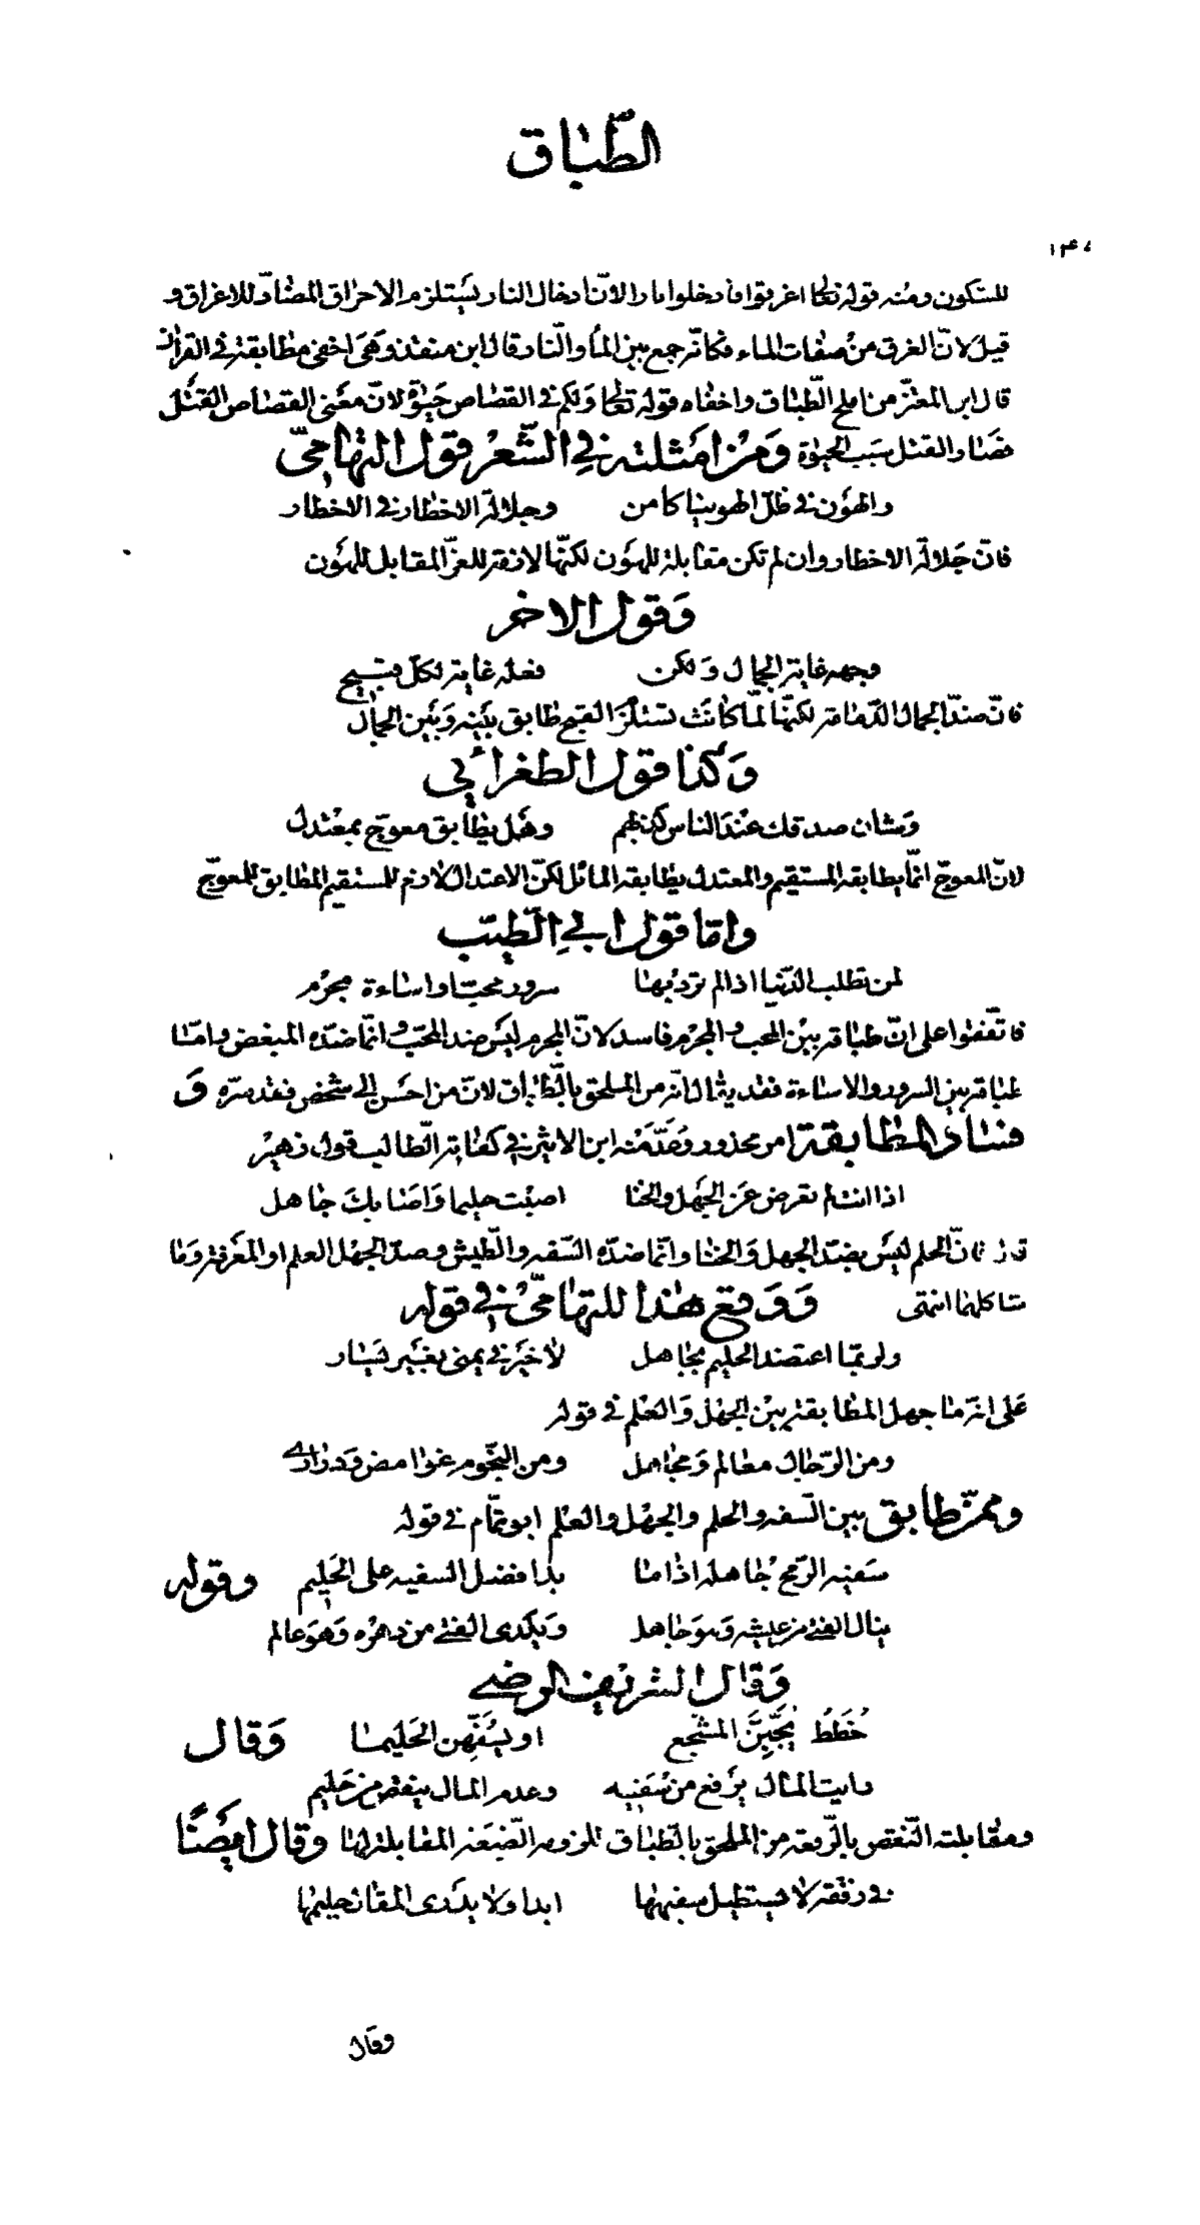 الطّباق
١٤٧
للسّكون ومنه قوله تعالى اغرقوا فادخلوا نارا لانّ ادخال النار يستلزم الاحراق المضادّ للاغراق و
قيل لانّ الغرق من صفات الماء فكانّه جمع بين الماء والنّار قال ابن منقذ وهى اخفى مطابقة فى القرآن
قال ابن المعتزّ من املح الطّباق واخفاه قوله تعالى ولكم فى القصاص حيوة لانّ معنى القصاص القتل
فصار القتل سبب الحيوة ومن امثلته فى الشّعر قول التهامىّ
والهون فى ظلّ الهوينا كامن وجلالة الاخطار فى الاخطار
فانّ جلالة الاخطار وان لم تكن مقابلة للهون لكنّها لازمة للعزّ المقابل للهون
وقول الاخر
وجهه غاية الجمال ولكن فعله غاية لكلّ قبيح
فانّ ضدّ الجمال الدّمامة لكنّها لمّا كانت تستلزم القبح طابق بينه وبين الجمال
وكذا قول الطغرائى
وشان صدقك عند الناس كذبهم وهل يطابق معوجّ بمعتدل
لانّ المعوجّ انّما يطابقه المستقيم والمعتدل يطابقه المائل لكنّ الاعتدال لازم للمستقيم المطابق للمعوجّ
وامّا قول ابى الطّيّب
لمن تطلب الدّنيا اذا لم ترد بها سرور محبّ او اساءة مجرم
فاتّفقوا على انّ طباقه بين المحب والمجرم فاسد لانّ المجرم ليس ضد المحبّ وانّما ضدّه المبغض وامّا
طباقه بين السرور والاساءة فقد يقال انّه من الملحق بالطّباق لانّ من احسن الى شخص فقد سرّه و
فساد المطابقة امر محذور وعدّ منه ابن الاثير فى كفاية الطّالب قول زهير
اذا انت لم تعرض عن الجهل والخنا اصبت حليما او اصابك جاهل
قال فانّ الحلم ليس بضدّ الجهل والخنا وانّما ضدّه السّفه والطّيش وضدّ الجهل العلم او المعرفة وما
شاكلهما انتهى ووقع هذا للتهامىّ فى قوله
ولربّما اعتضد الحليم بجاهل لا خير فى يمنى بغير يسار
على انّه ما جهل المطابقة بين الجهل والعلم فى قوله
ومن الرّجال معالم ومجاهل ومن النّجوم غوامض ودرارى
وممّن طابق بين السّفه والحلم والجهل والعلم ابو تمّام فى قوله
سفيه الرّمح جاهله اذا ما بدا فضل السفيه على الحليم وقوله
ينال الفتى من عيشه وهو جاهل ويكدى الفتى من دهره وهو عالم
وقال الشريف الرضى
خطط يجبّن المشجع او يسفّهن الحليما وقال
رايت المال يرفع من سفيه وعدم المال ينقص من حليم
ومقابلته النّقص بالرّفعة من الملحق بالطّباق للزومه الضّعة المقابلة لها وقال ايضًا
فى رفقة لا يستطيل سفيهها ابدا ولا يدرى المقال حليمها
وقال